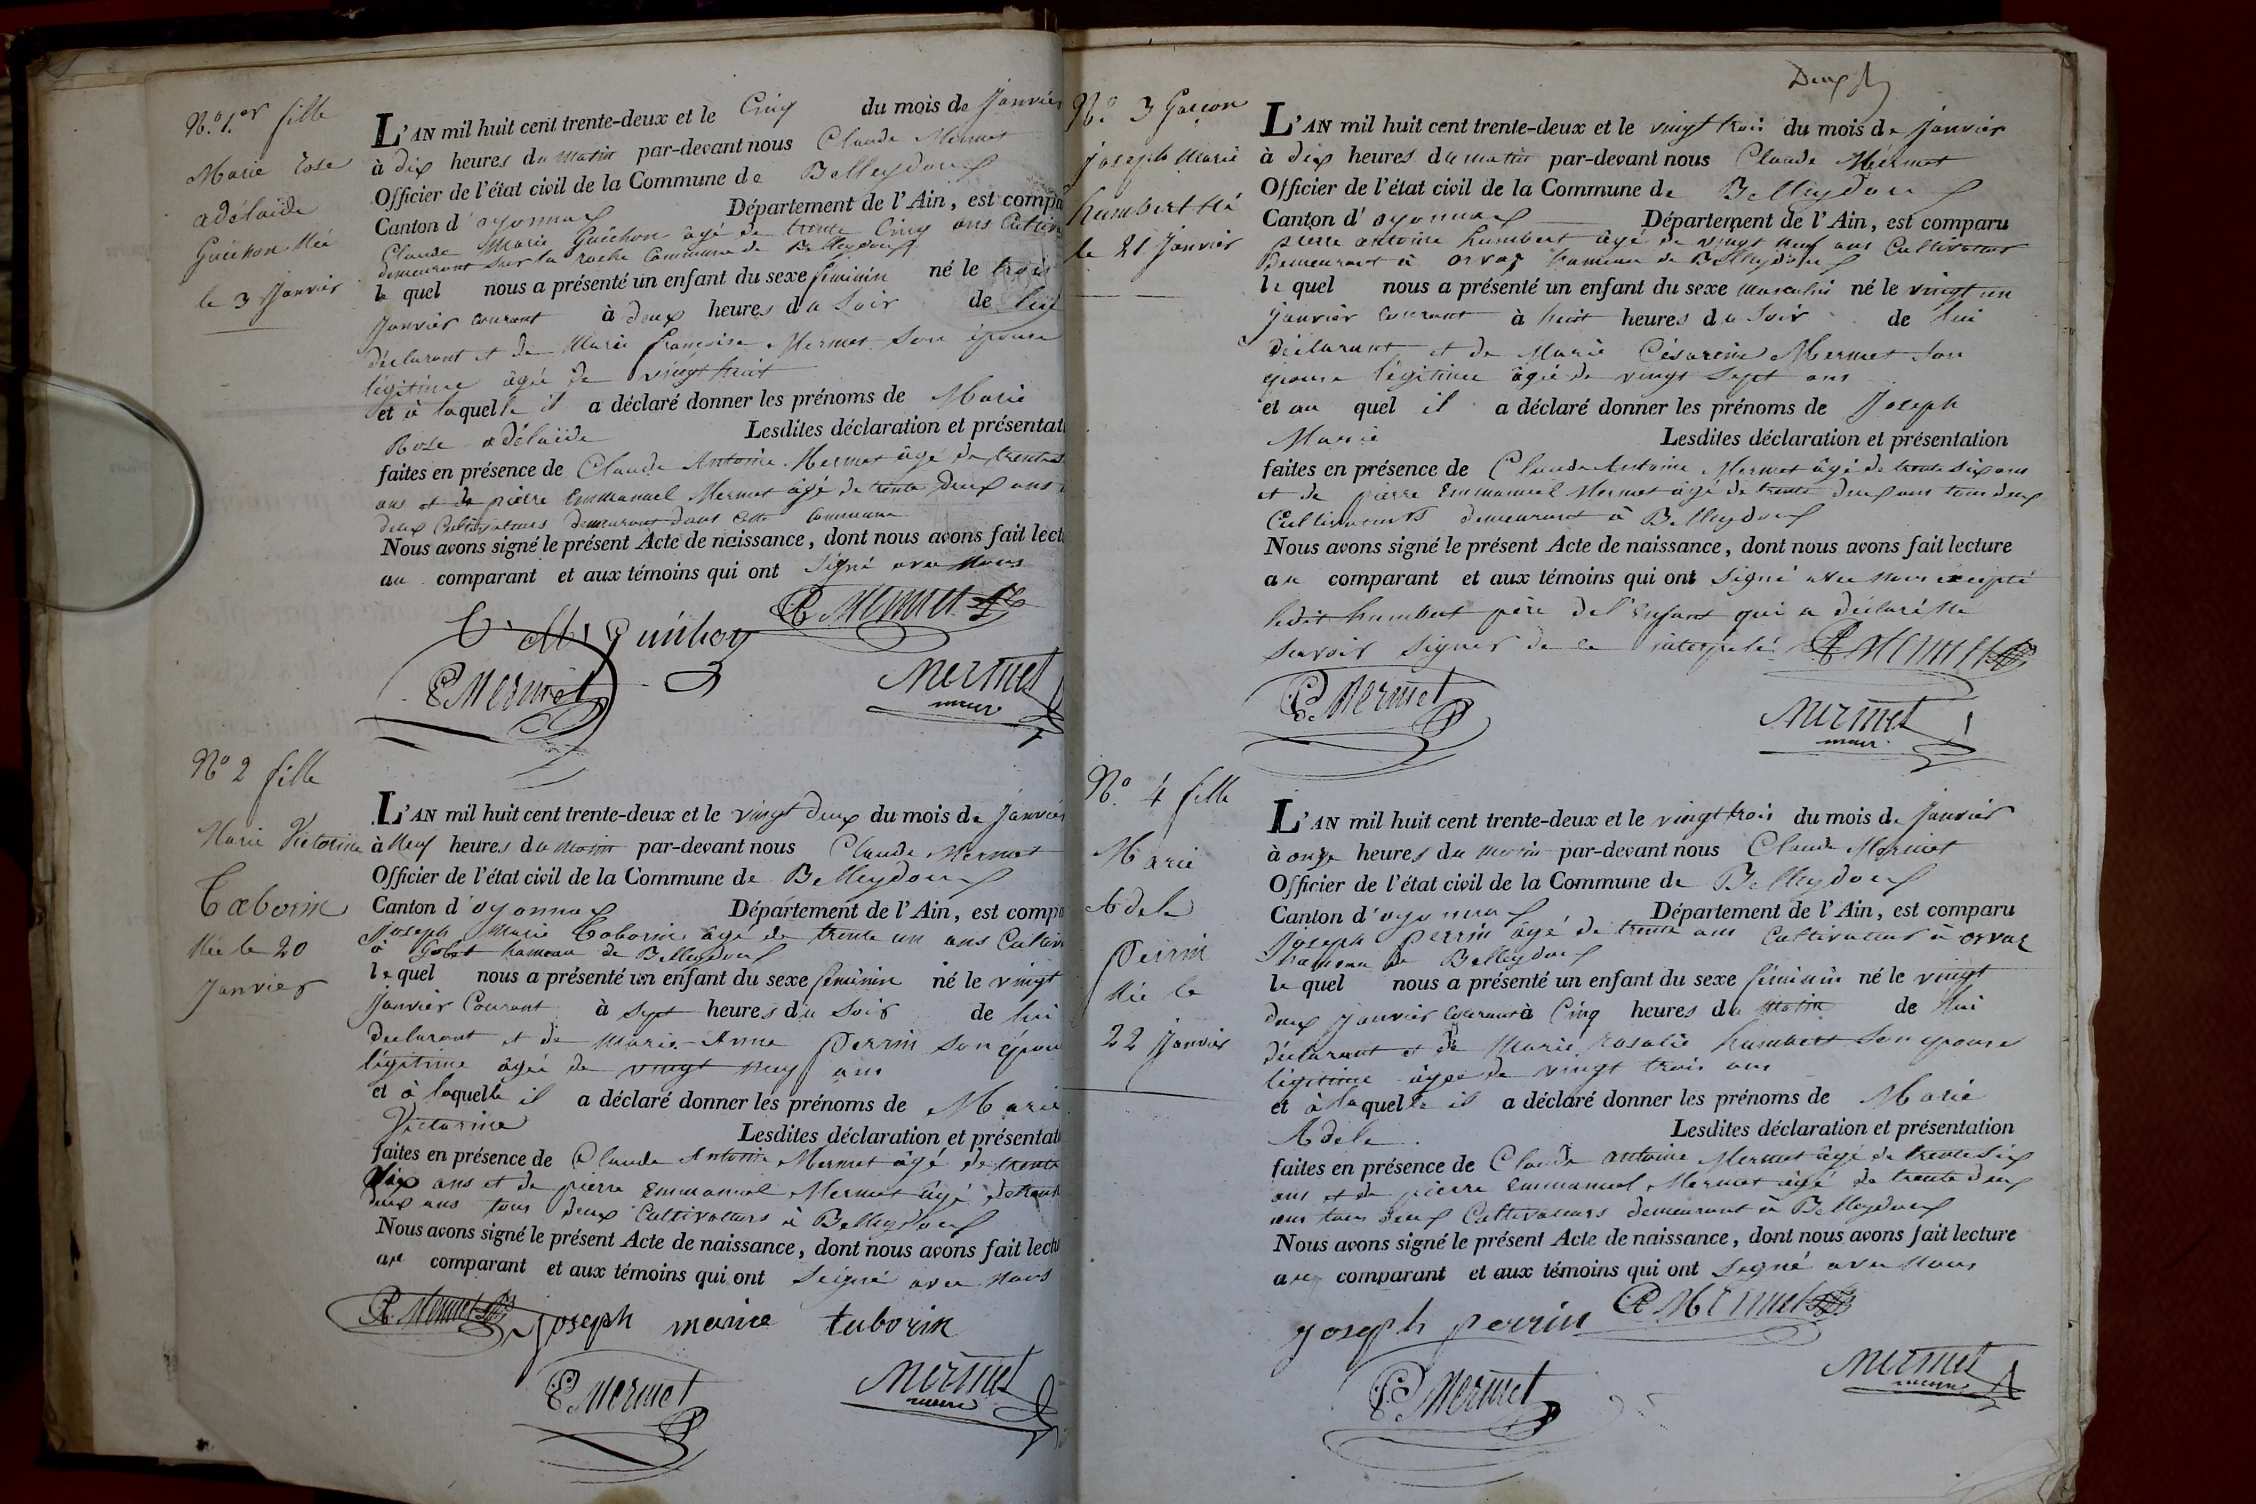 N.º 1.er fille
Marie Rose
adélaïde
Guichon Née
le 3 Janvier
L'AN mil huit cent trente-deux et le Cinq du mois de Janvier
à dix heures du matin par-devant nous Claude Mermet
Officier de l'état civil de la Commune de Belleydoux
Canton d'oyonnax Département de l'Ain, est compa
Claude Marie Guichon âgé de trente Cinq ans Cultiv
demeurant sur la roche Commune de Belleydoux
le quel nous a présenté un enfant du sexe féminin né le trois
Janvier courant à deux heures du Soir de lui
déclarant et de Marie françoise Mermet Son épouse
légitime âgée de vingt huit
et à laquelle il a déclaré donner les prénoms de Marie
Rose adélaïde Lesdites déclaration et présentat
faites en présence de Claude Antoine Mermet âgé de trente
ans et de pierre Emmanuel Mermet âgé de trente deux ans
deux Cultivateurs demeurant dans Cette Commune
Nous avons signé le présent Acte de naissance, dont nous avons fait lect
au comparant et aux témoins qui ont Signé avec Nous
C. M. Guichon
Mermet
E Mermet
Mermet
maire
Nº 2 fille
Marie Victorine
Taborin
Née le 20
Janvier
L'AN mil huit cent trente-deux et le vingt deux du mois de Janvier
à Neuf heures du matin par-devant nous Claude Mermet
Officier de l'état civil de la Commune de Belleydoux
Canton d'oyonnax Département de l'Ain, est compa
Joseph Marie Taborin âgé de trente un ans Cultiv
à Gobet hameau de Belleydoux
le quel nous a présenté un enfant du sexe féminin né le vingt
Janvier Courant à Sept heures du Soir de lui
declarant et de Marie-Anne Perrin Son épou
légitime âgée de vingt neuf ans
et à laquelle il a déclaré donner les prénoms de Marie
Victorine Lesdites déclaration et présentat
faites en présence de Claude Antoine Mermet âgé de trente
Six ans et de pierre Emmanuel Mermet âgé de trente
deux ans tous deux Cultivateurs à Belleydoux
Nous avons signé le présent Acte de naissance, dont nous avons fait lectu
au comparant et aux témoins qui ont Seigné avec Nous
Mermet joseph marie taborin
E Mermet
Mermet
maire
Nº. 3 Garçon
Joseph Marie
humbert Né
le 21 Janvier
L'AN mil huit cent trente-deux et le vingt trois du mois de Janvier
à dix heures du matin par-devant nous Claude Mermet
Officier de l'état civil de la Commune de Belleydoux
Canton d'oyonnax Département de l'Ain, est comparu
pierre antoine humbert âgé de vingt neuf ans Cultivateur
Demeurant à orvaz hameau de Belleydoux
le quel nous a présenté un enfant du sexe masculin né le vingt un
Janvier Courant à huit heures du Soir de lui
Déclarant et de Marie Césarine Mermet Son
epouse légitime âgée de vingt Sept ans
et au quel il a déclaré donner les prénoms de Joseph
Marie Lesdites déclaration et présentation
faites en présence de Claude Antoine Mermet âgé de trente Six ans
et de pierre Emmanuel Mermet âgé de trente deux ans tous deux
Cultivateurs demeurant à Belleydoux
Nous avons signé le présent Acte de naissance, dont nous avons fait lecture
au comparant et aux témoins qui ont Signé avec nous excepté
ledit humbert père de l'Enfant qui a déclaré Ne
Savoir Signer de ce interpelé
Mermet
E Mermet
Mermet
maire
Nº. 4 fille
Marie
Adele
Perrin
Née le
22 Janvier
L'AN mil huit cent trente-deux et le vingt trois du mois de Janvier
à onze heures du matin par-devant nous Claude Mermet
Officier de l'état civil de la Commune de Belleydoux
Canton d'oyonnax Département de l'Ain, est comparu
Joseph Perrin âgé de trente ans Cultivateur à orvaz
hameau de Belleydoux
le quel nous a présenté un enfant du sexe féminin né le vingt
deux Janvier Courant à Cinq heures du Matin de lui
déclarant et de Marie rosalie humbert Son epouse
légitime âgée de vingt trois ans
et à laquelle il a déclaré donner les prénoms de Marie
Adele. Lesdites déclaration et présentation
faites en présence de Claude antoine Mermet âgé de trente Six
ans et de pierre Emmanuel Mermet âgé de trente deux
ans tous deux Cultivateurs demeurant à Belleydoux
Nous avons signé le présent Acte de naissance, dont nous avons fait lecture
au comparant et aux témoins qui ont Signé avec Nous
joseph perrin Mermet
E Mermet
Mermet
maire